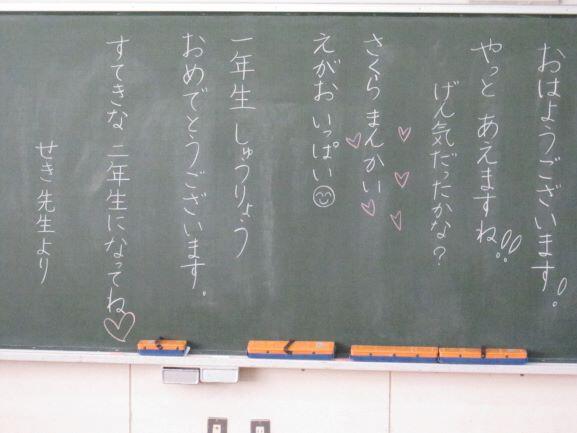 おはようございます！
やっと あえますね！！
げん気だったかな？
さくら まんかい
えがお いっぱい
一年生 しゅうりょう
おめでとうございます。
すてきな 二年生になってね
せき先生より